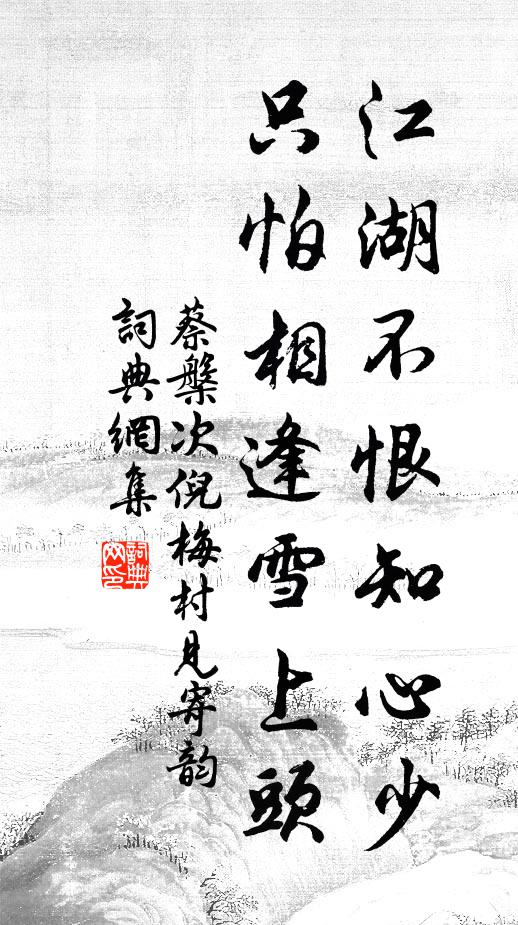 江湖不恨知心少
只怕相逢雪上頭
蔡槃次倪梅村見寄韵
詞典網集
詞典网印